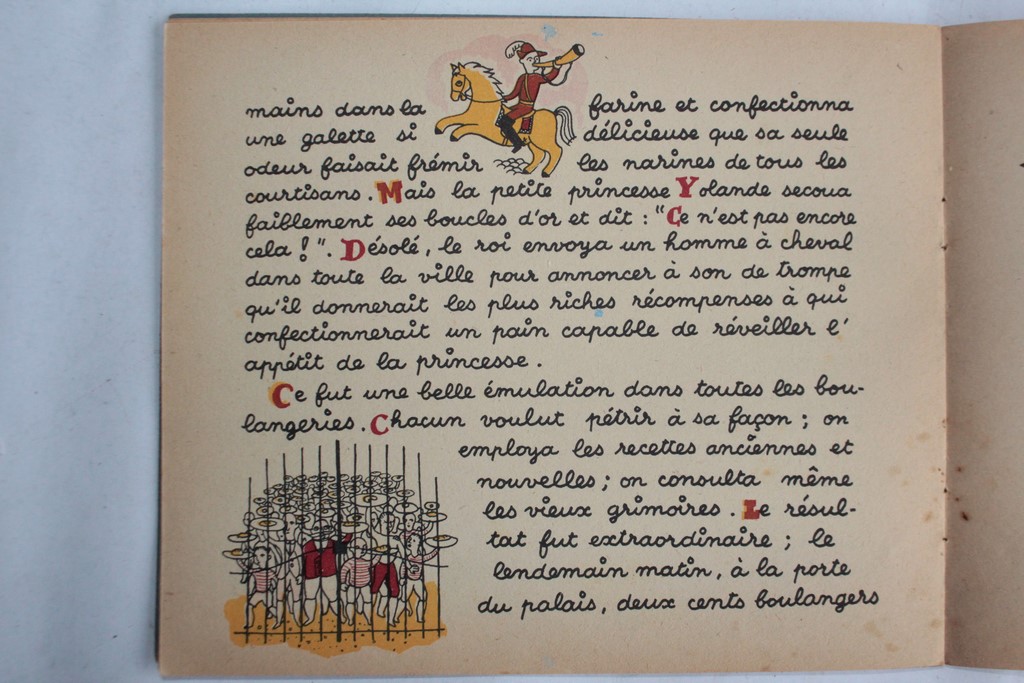 mains dans la farine et confectionna
une galette si délicieuse que sa seule
odeur faisait frémir les narines de tous les
courtisans. Mais la petite princesse Yolande secoua
faiblement ses boucles d'or et dit : "Ce n'est pas encore
cela ! ". Désolé, le roi envoya un homme à cheval
dans toute la ville pour annoncer à son de trompe
qu'il donnerait les plus riches récompenses à qui
confectionnerait un pain capable de réveiller l'
appétit de la princesse.
Ce fut une belle émulation dans toutes les bou-
langeries. Chacun voulut pétrir à sa façon ; on
employa les recettes anciennes et
nouvelles ; on consulta même
les vieux grimoires. Le résul-
tat fut extraordinaire ; le
lendemain matin, à la porte
du palais, deux cents boulangers